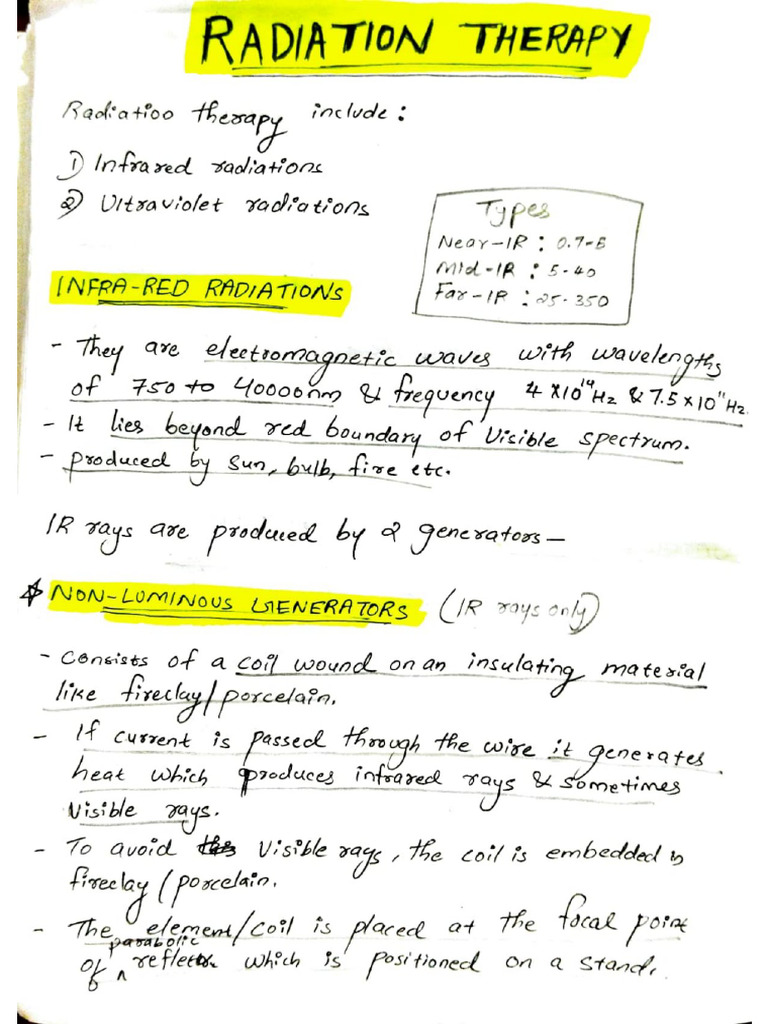 RADIATION THERAPY
Radiation therapy include :
1) Infrared radiations
2) Ultraviolet radiations
Types
Near-IR : 0.7-5
Mid-IR : 5-40
Far-IR : 25-350
INFRA-RED RADIATIONS
- They are electromagnetic waves with wavelengths
of 750 to 40000nm & frequency 4 x 10¹⁴Hz & 7.5 x 10¹¹Hz.
- It lies beyond red boundary of visible spectrum.
- produced by sun, bulb, fire etc.
IR rays are produced by 2 generators-
☆ NON-LUMINOUS GENERATORS (IR rays only)
- Consists of a coil wound on an insulating material
like fireclay/porcelain.
- If current is passed through the wire it generates
heat which produces infrared rays & sometimes
visible rays.
- To avoid visible rays, the coil is embedded in
fireclay/porcelain.
- The element/coil is placed at the focal point
of parabolic reflector which is positioned on a stand.